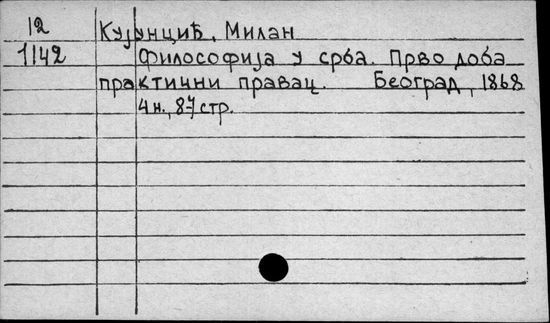 12 Кујунџић, Милан
1142 Филозофија у срба. Прво доба
практични правац. Београд, 1868
4н., 87 стр.